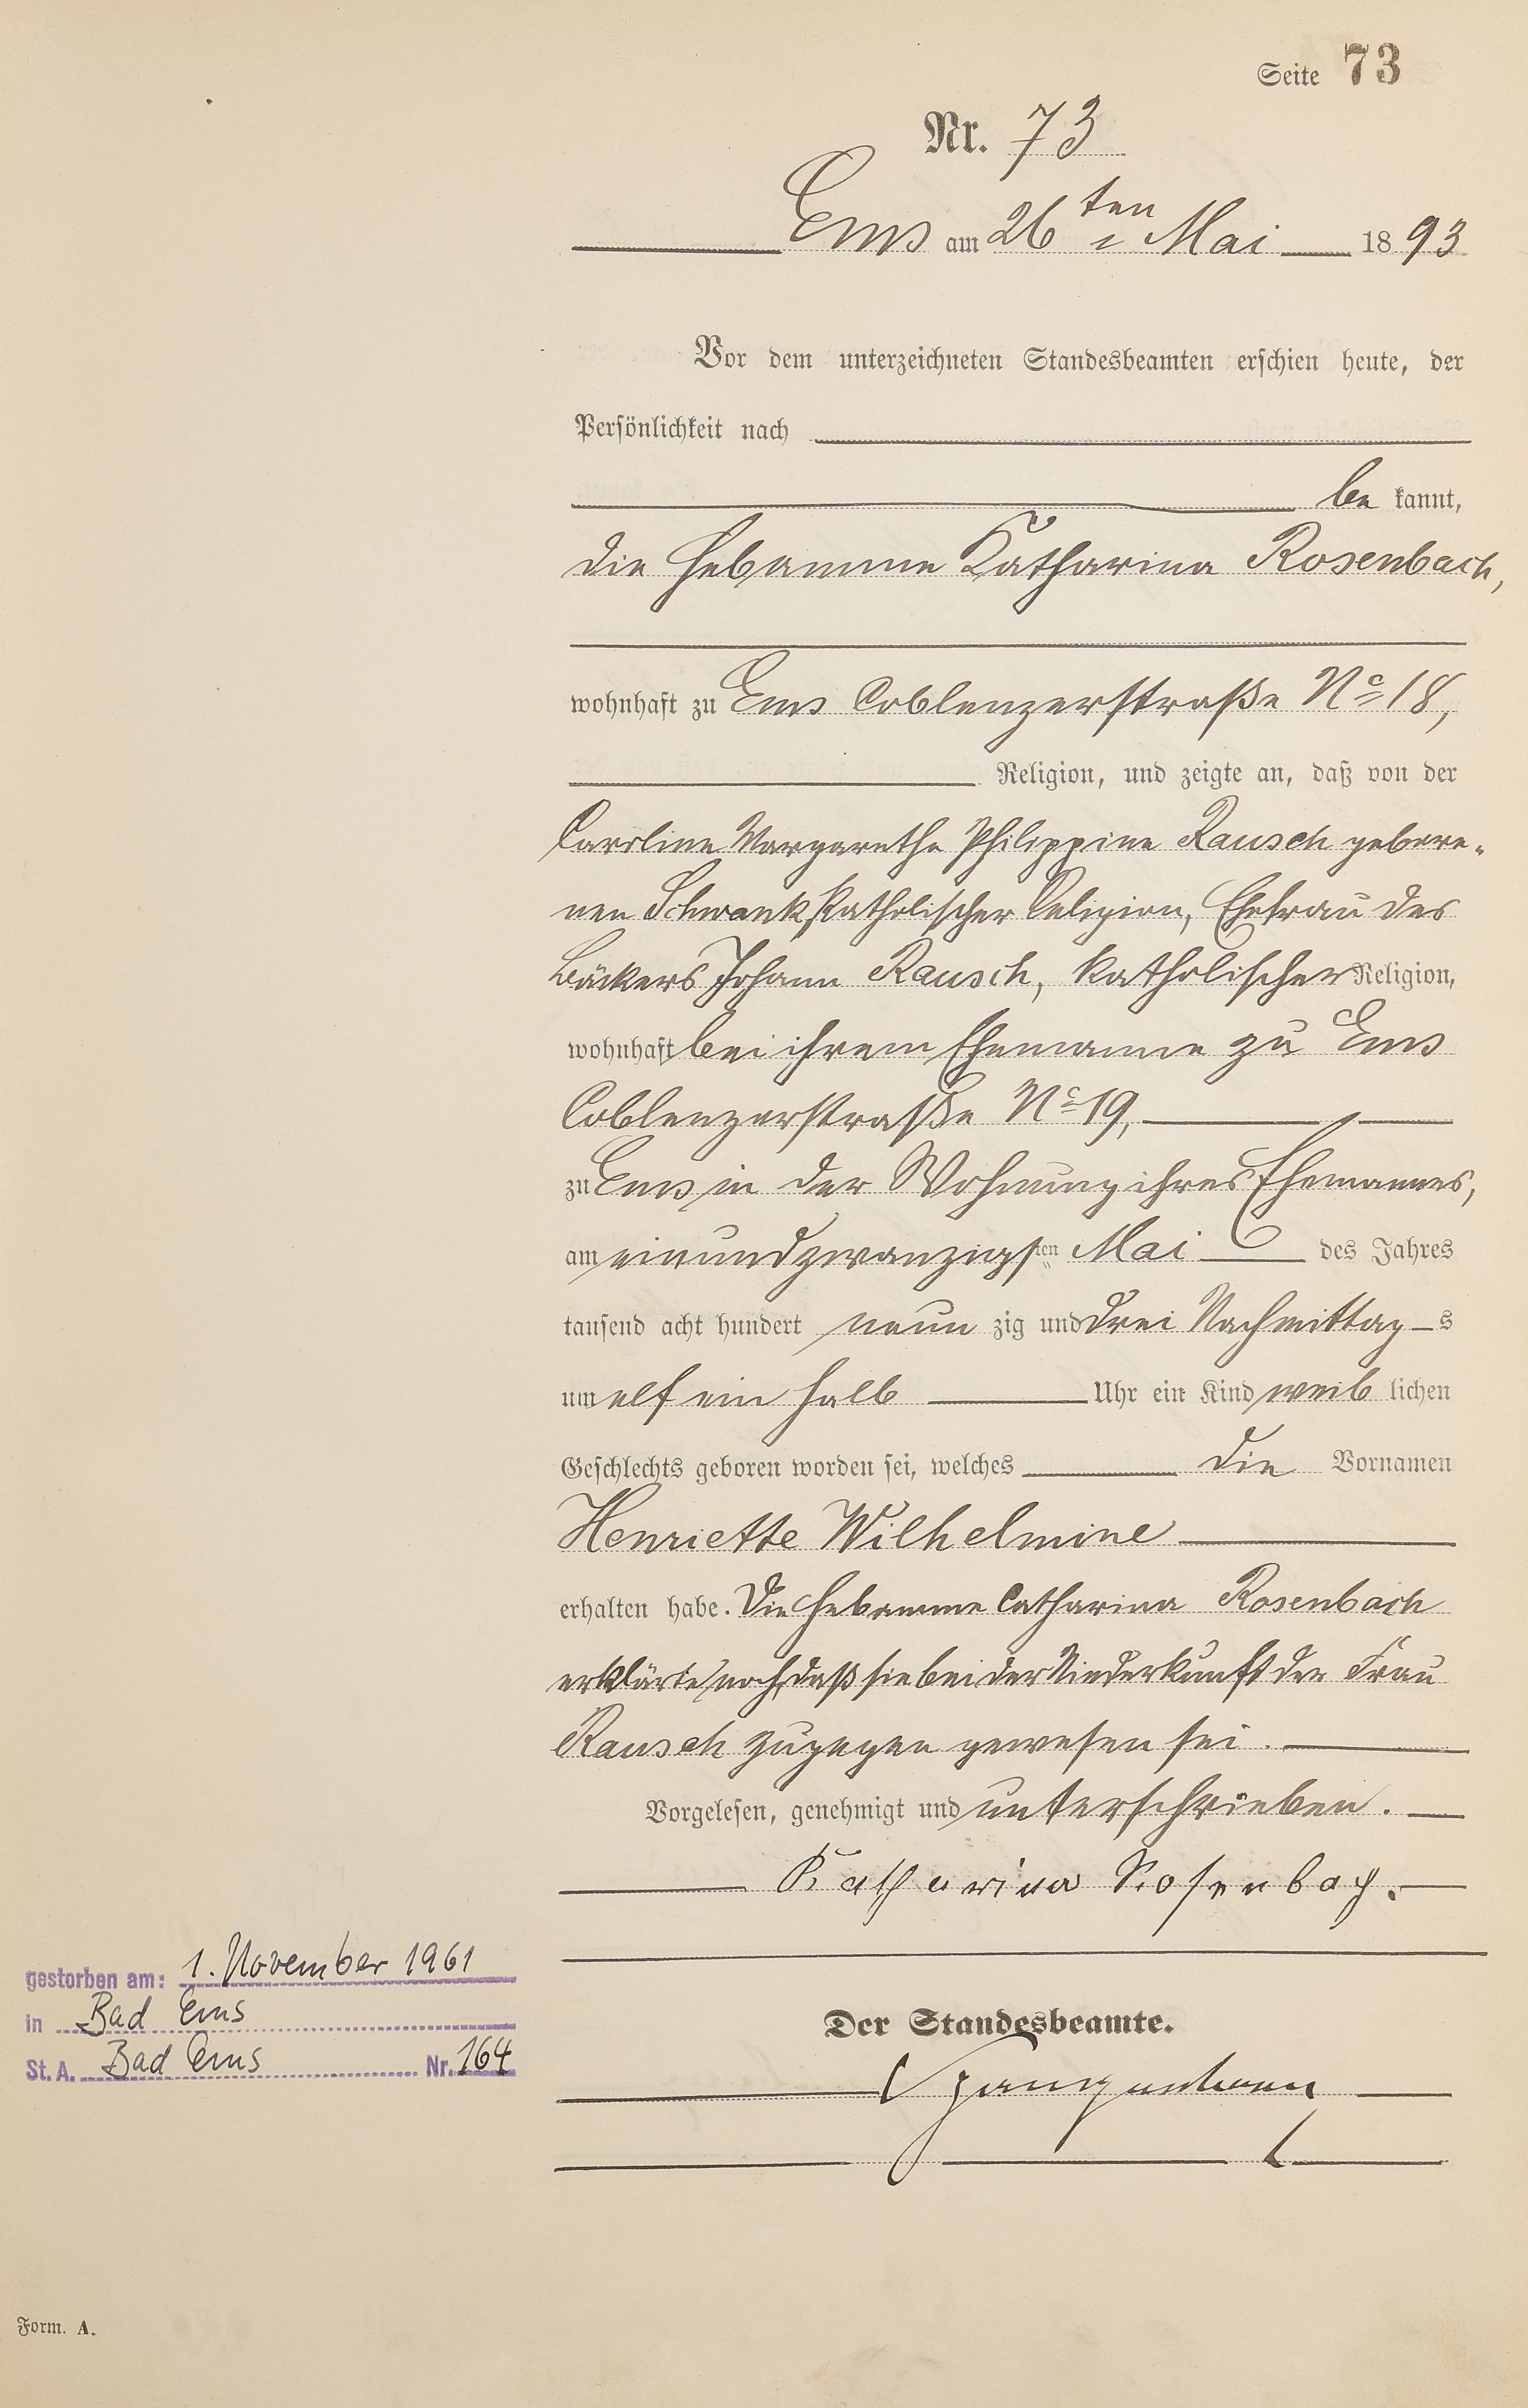 Seite 73
Nr. 73
Ems am 26ten Mai 1893
Vor dem unterzeichneten Standesbeamten erschien heute, der
Persönlichkeit nach
be kannt,
die Hebamme Katharina Rosenbach,
wohnhaft zu Ems Coblenzerstraße No 18,
Religion, und zeigte an, daß von der
Caroline Margarethe Philippine Rausch gebore-
nen Schwank, katholischer Religion, Ehefrau des
Bäckers Johann Rausch, katholischer Religion,
wohnhaft bei ihrem Ehemanne zu Ems
Coblenzerstraße No 19,
zu Ems in der Wohnung ihres Ehemannes,
am einundzwanzigsten Mai des Jahres
tausend acht hundert neun zig und drei Nachmittag s
um elf ein halb Uhr ein Kind weib lichen
Geschlechts geboren worden sei, welches die Vornamen
Henriette Wilhelmine
erhalten habe. Die Hebamme Catharina Rosenbach
erklärte noch, daß sie bei der Niederkunft der Frau
Rausch zugegen gewesen sei.
Vorgelesen, genehmigt und unterschrieben.
Katharina Rosenbach.
gestorben am: 1. November 1961
in Bad Ems
St. A. Bad Ems Nr. 164
Der Standesbeamte.
Form. A.